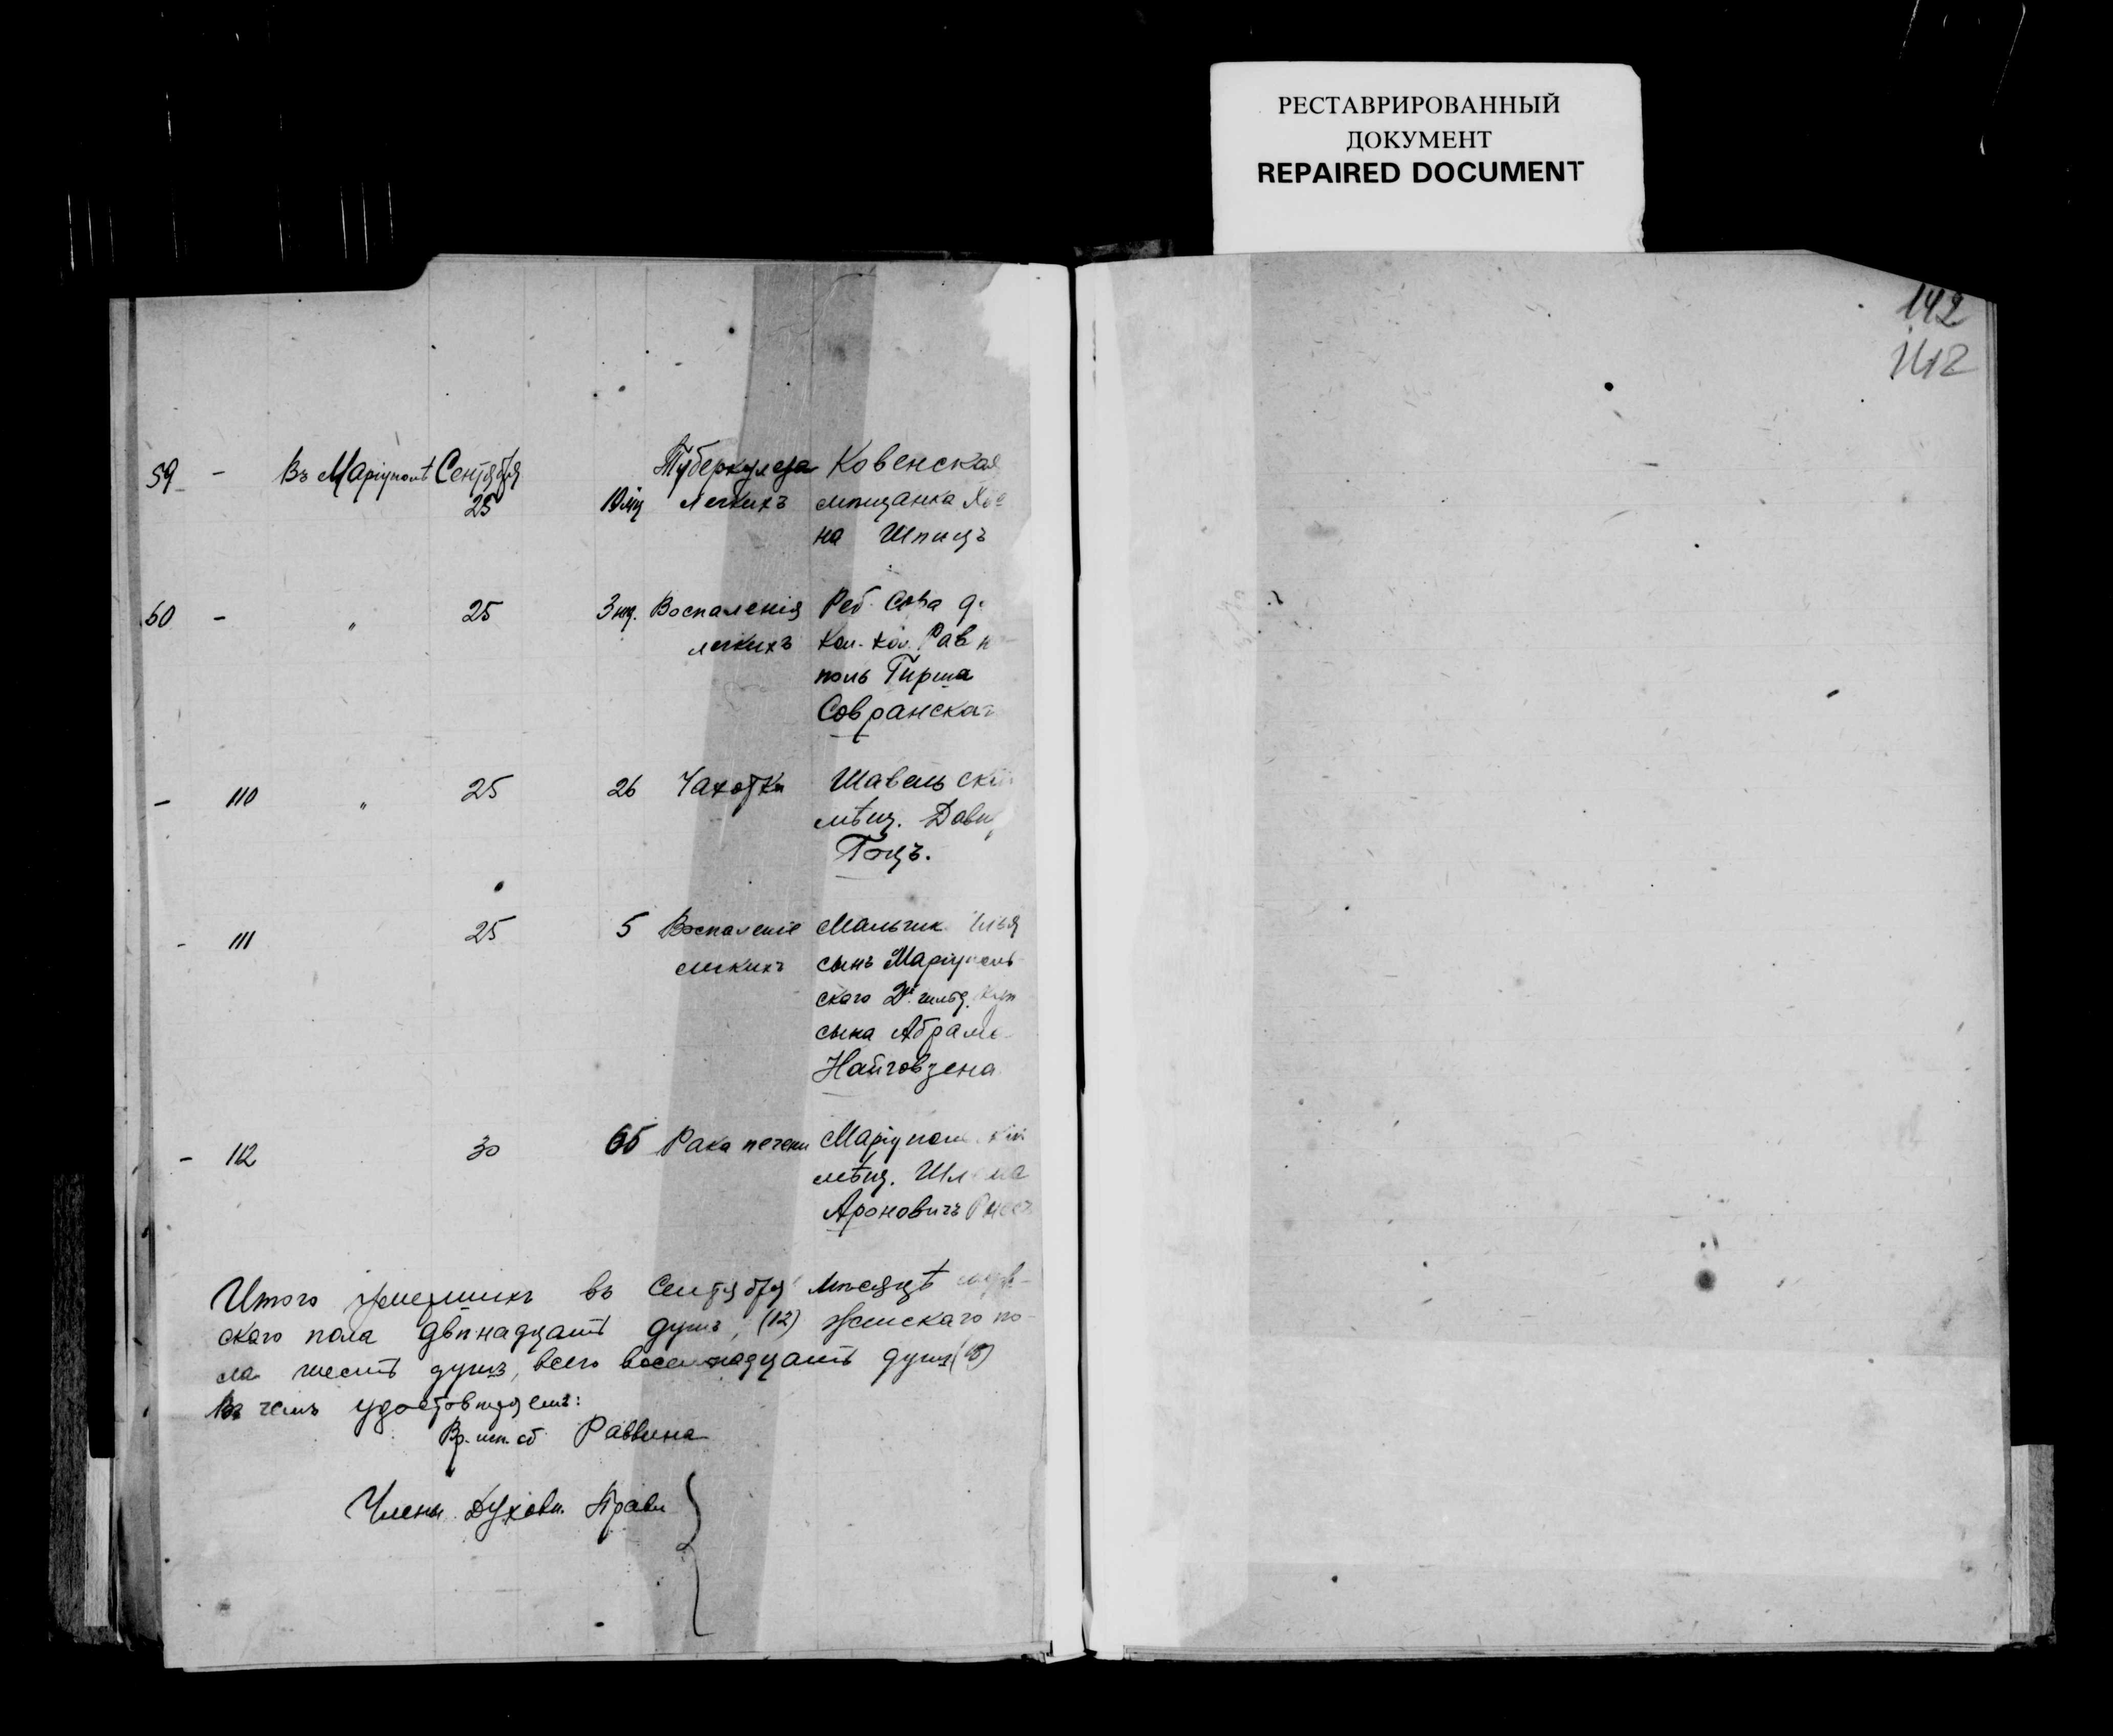 РЕСТАВРИРОВАННЫЙ
ДОКУМЕНТ
REPAIRED DOCUMENT
142
142
59 - Въ Маріуполѣ Сентября Туберкулеза Ковенская
25 10 мц легкихъ мѣщанка
на Шпицъ
60 - " 25 3 нд. Воспаленія Реб. Сора
легкихъ Кол. кол. Равн
поль Гирша
Совранскаг
- 110 " 25 26 Чахотки Шавельскій
мѣщ. Давид
Гоцъ.
- 111 25 5 Воспаленіе Мальчик Илья
легкихъ сынъ Маріуполь
ского 2й гильд. куп
сына Абрама
Найговзена
- 112 30 65 Рака печени Маріупольскій
мѣщ. Шлема
Ароновичъ
Итого умершихъ въ Сентябрѣ мѣсяцѣ муж-
ского пола двѣнадцать душъ, (12) женскаго по-
ла шесть душъ, всего восемнадцать душъ (18)
Въ чемъ удостовѣряемъ:
Вр. исп. об Раввина
Члены Духовн. Правл